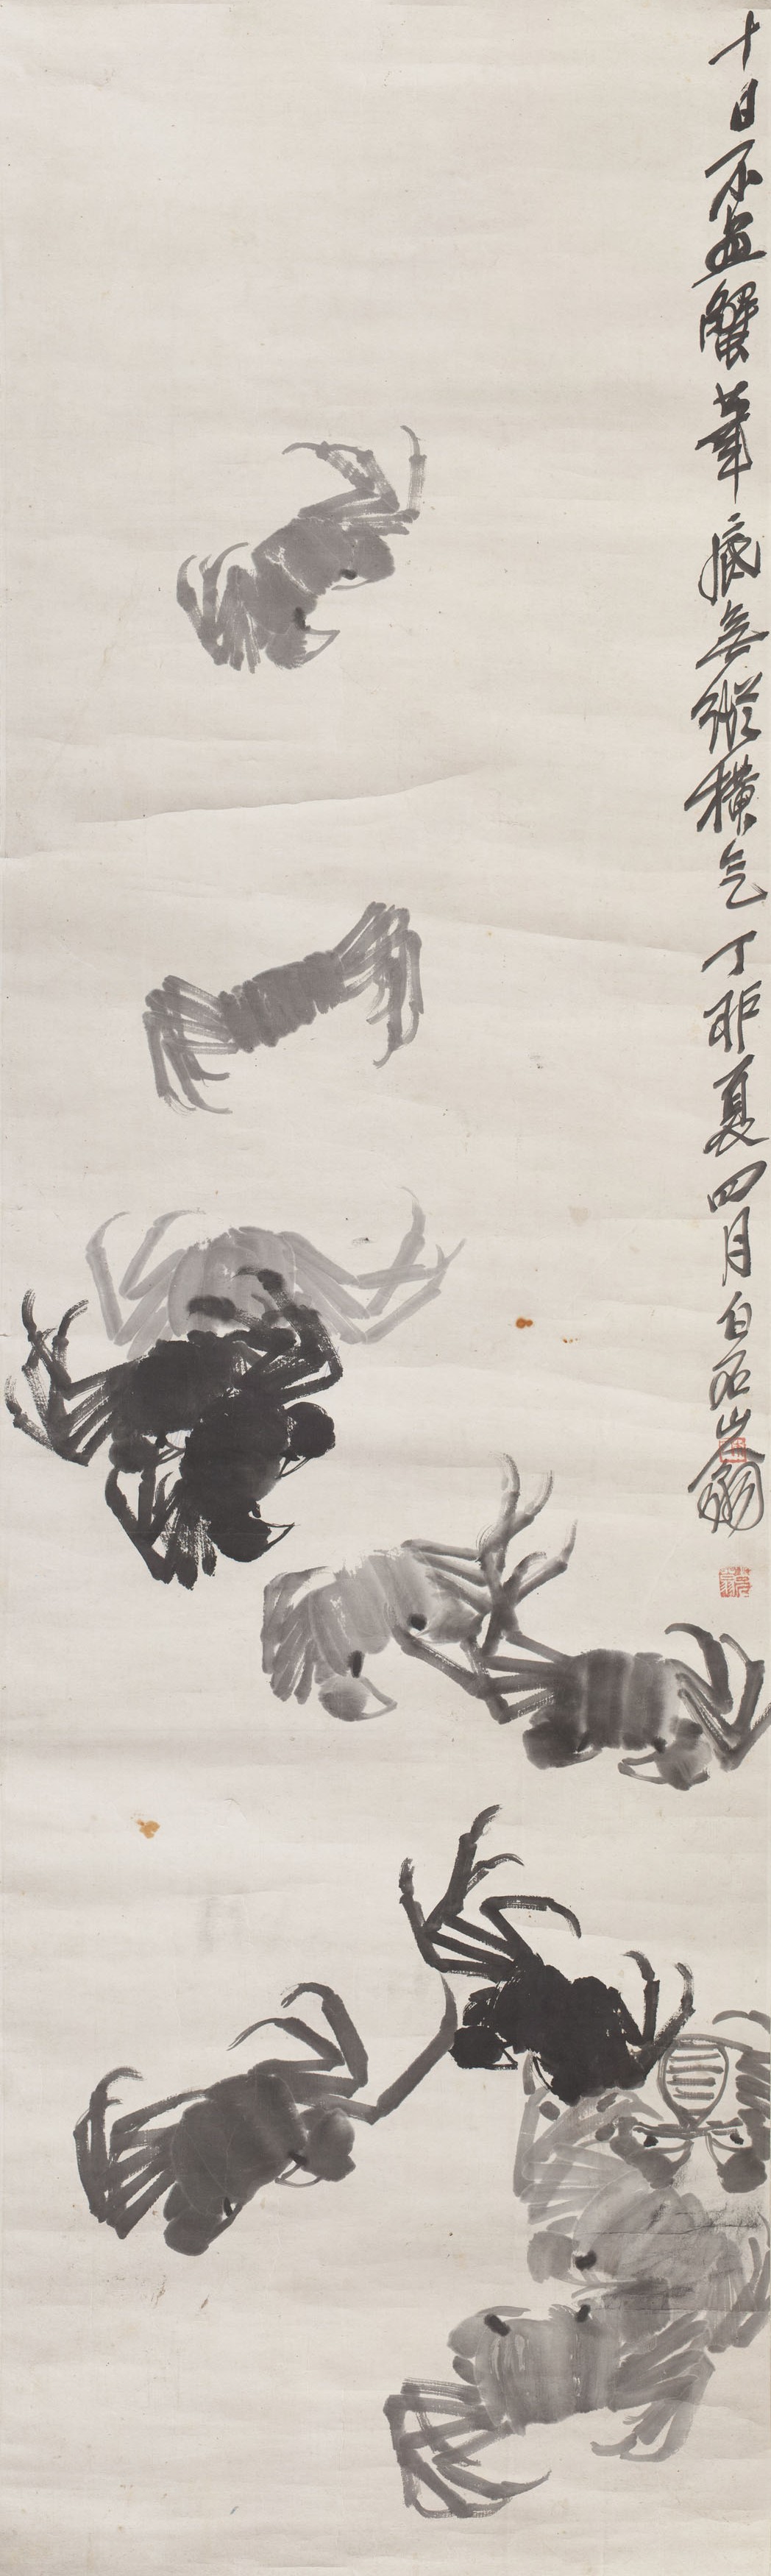 十日不畫蟹筆底無縱橫气丁卯夏四月白石山翁